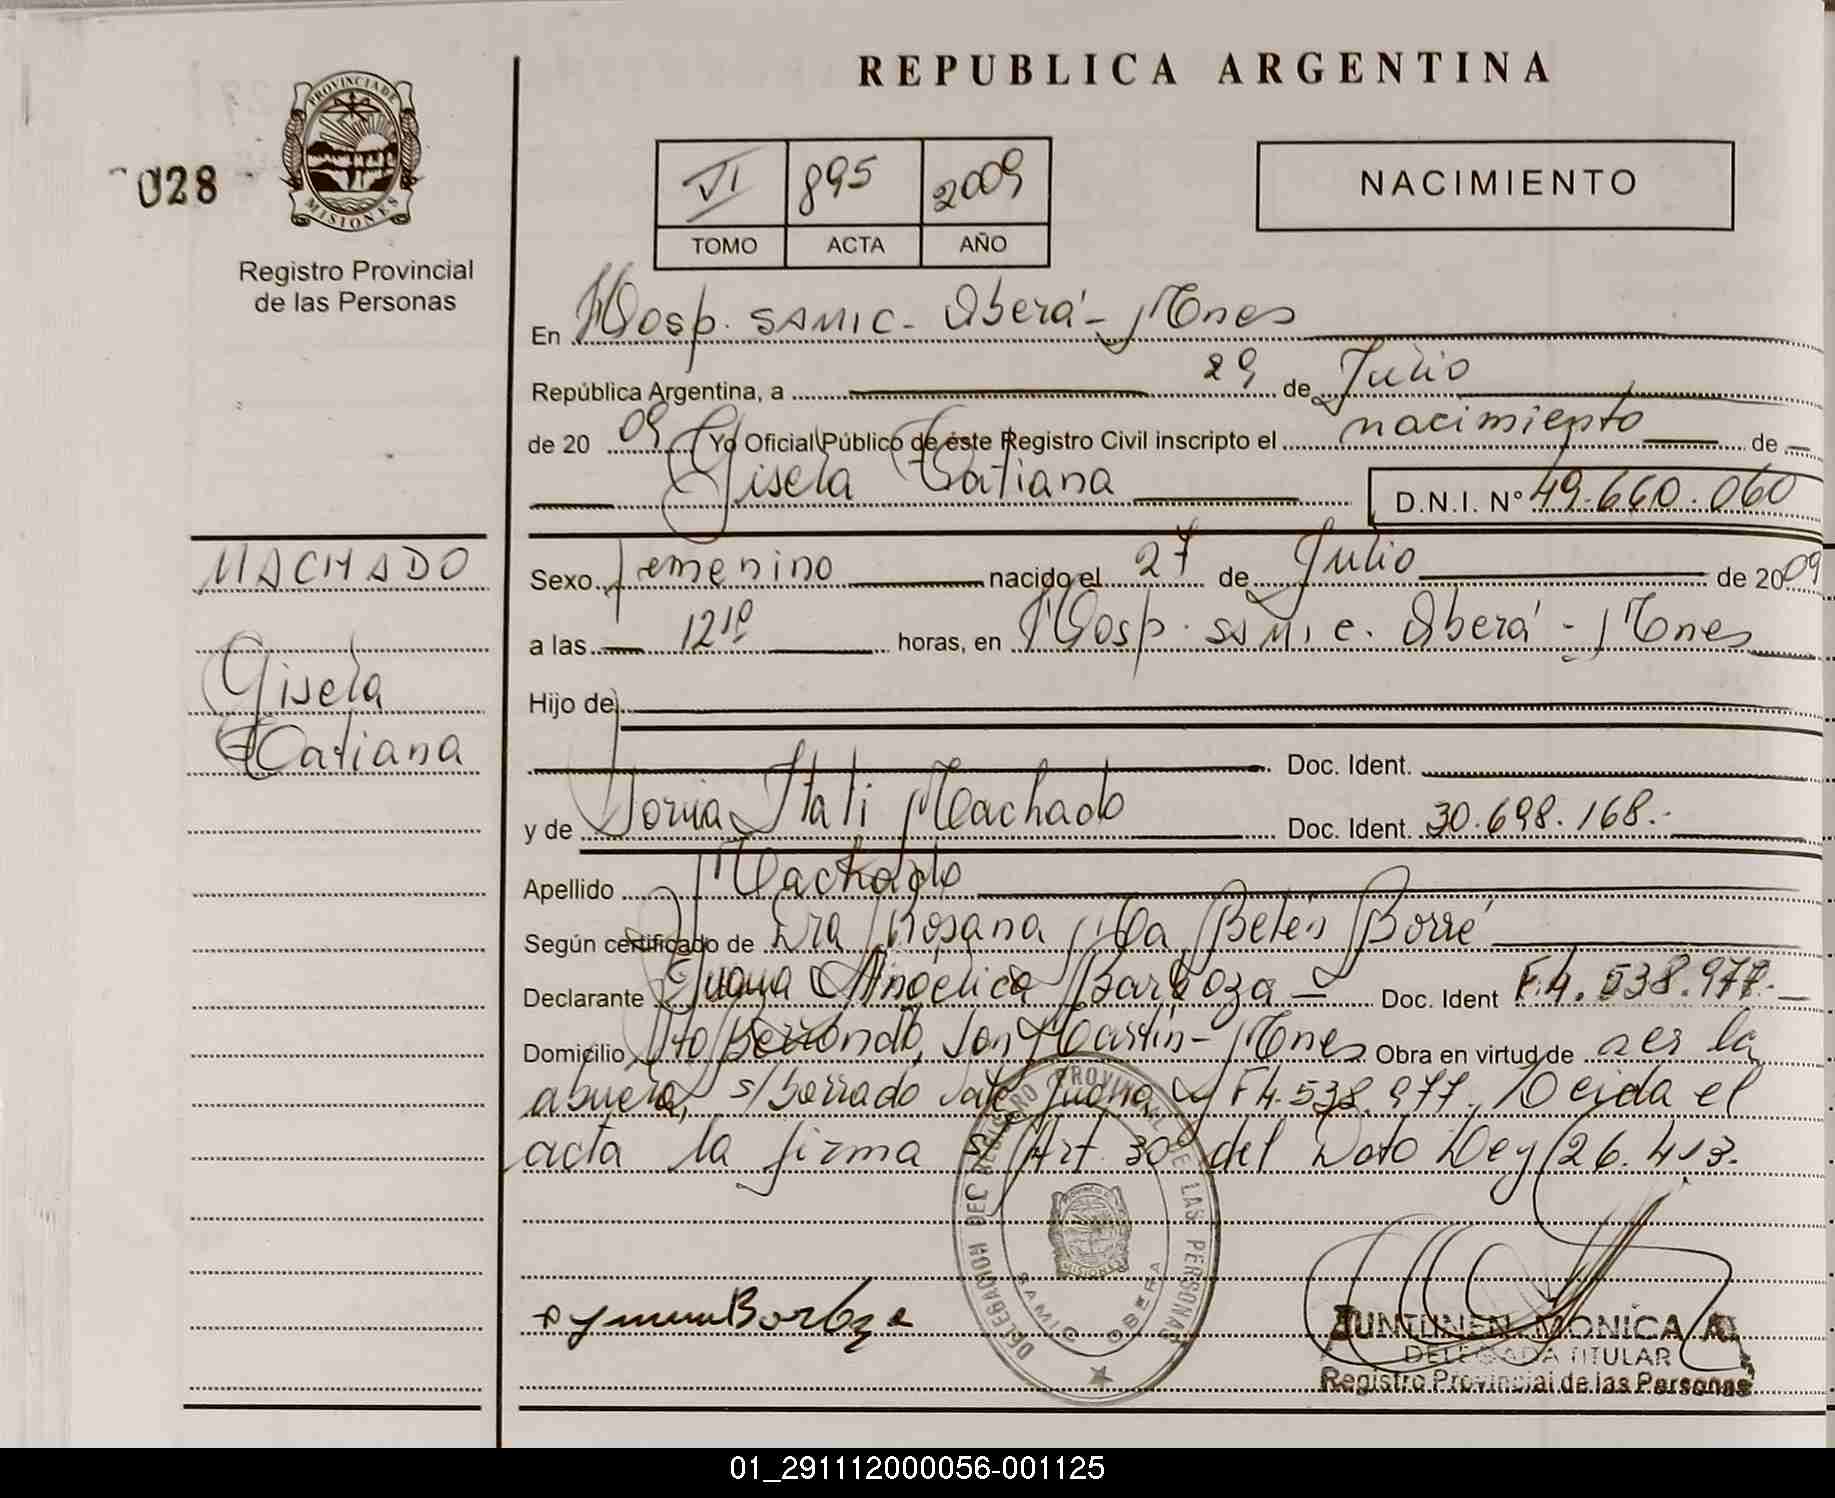 REPUBLICA ARGENTINA
028
PROVINCIA DE
MISIONES
Registro Provincial
de las Personas
VI 895 2009
TOMO ACTA AÑO
NACIMIENTO
En Hosp. SAMIC - Oberá - Mnes
República Argentina, a 29 de Julio
de 20 09 Yo Oficial Público de éste Registro Civil inscripto el nacimiento de
Gisela Tatiana D.N.I. Nº 49.660.060
MACHADO
Gisela
Tatiana
Sexo femenino nacido el 27 de Julio de 2009
a las 12 10 horas, en Hosp. SAMIC. Oberá - Mnes
Hijo de
Doc. Ident.
y de Sonia Itati Machado Doc. Ident. 30.698.168.-
Apellido Machado
Según certificado de Dra Rosana Ma Belén Borré
Declarante Juana Angélica Barboza - Doc. Ident F4.538.977.-
Domicilio San Martín - Mnes Obra en virtud de ser la
abuela, s/borrado vale Juana F4.538.977. Leida el
acta la firma s/ Art. 30º del Ley 26.413.
DELEGACION DEL REGISTRO PROVINCIAL DE LAS PERSONAS
SAMIC OBERA
MISIONES
Barboza
JUNTUNEN MONICA A.
DELEGADA TITULAR
Registro Provincial de las Personas
01_291112000056-001125